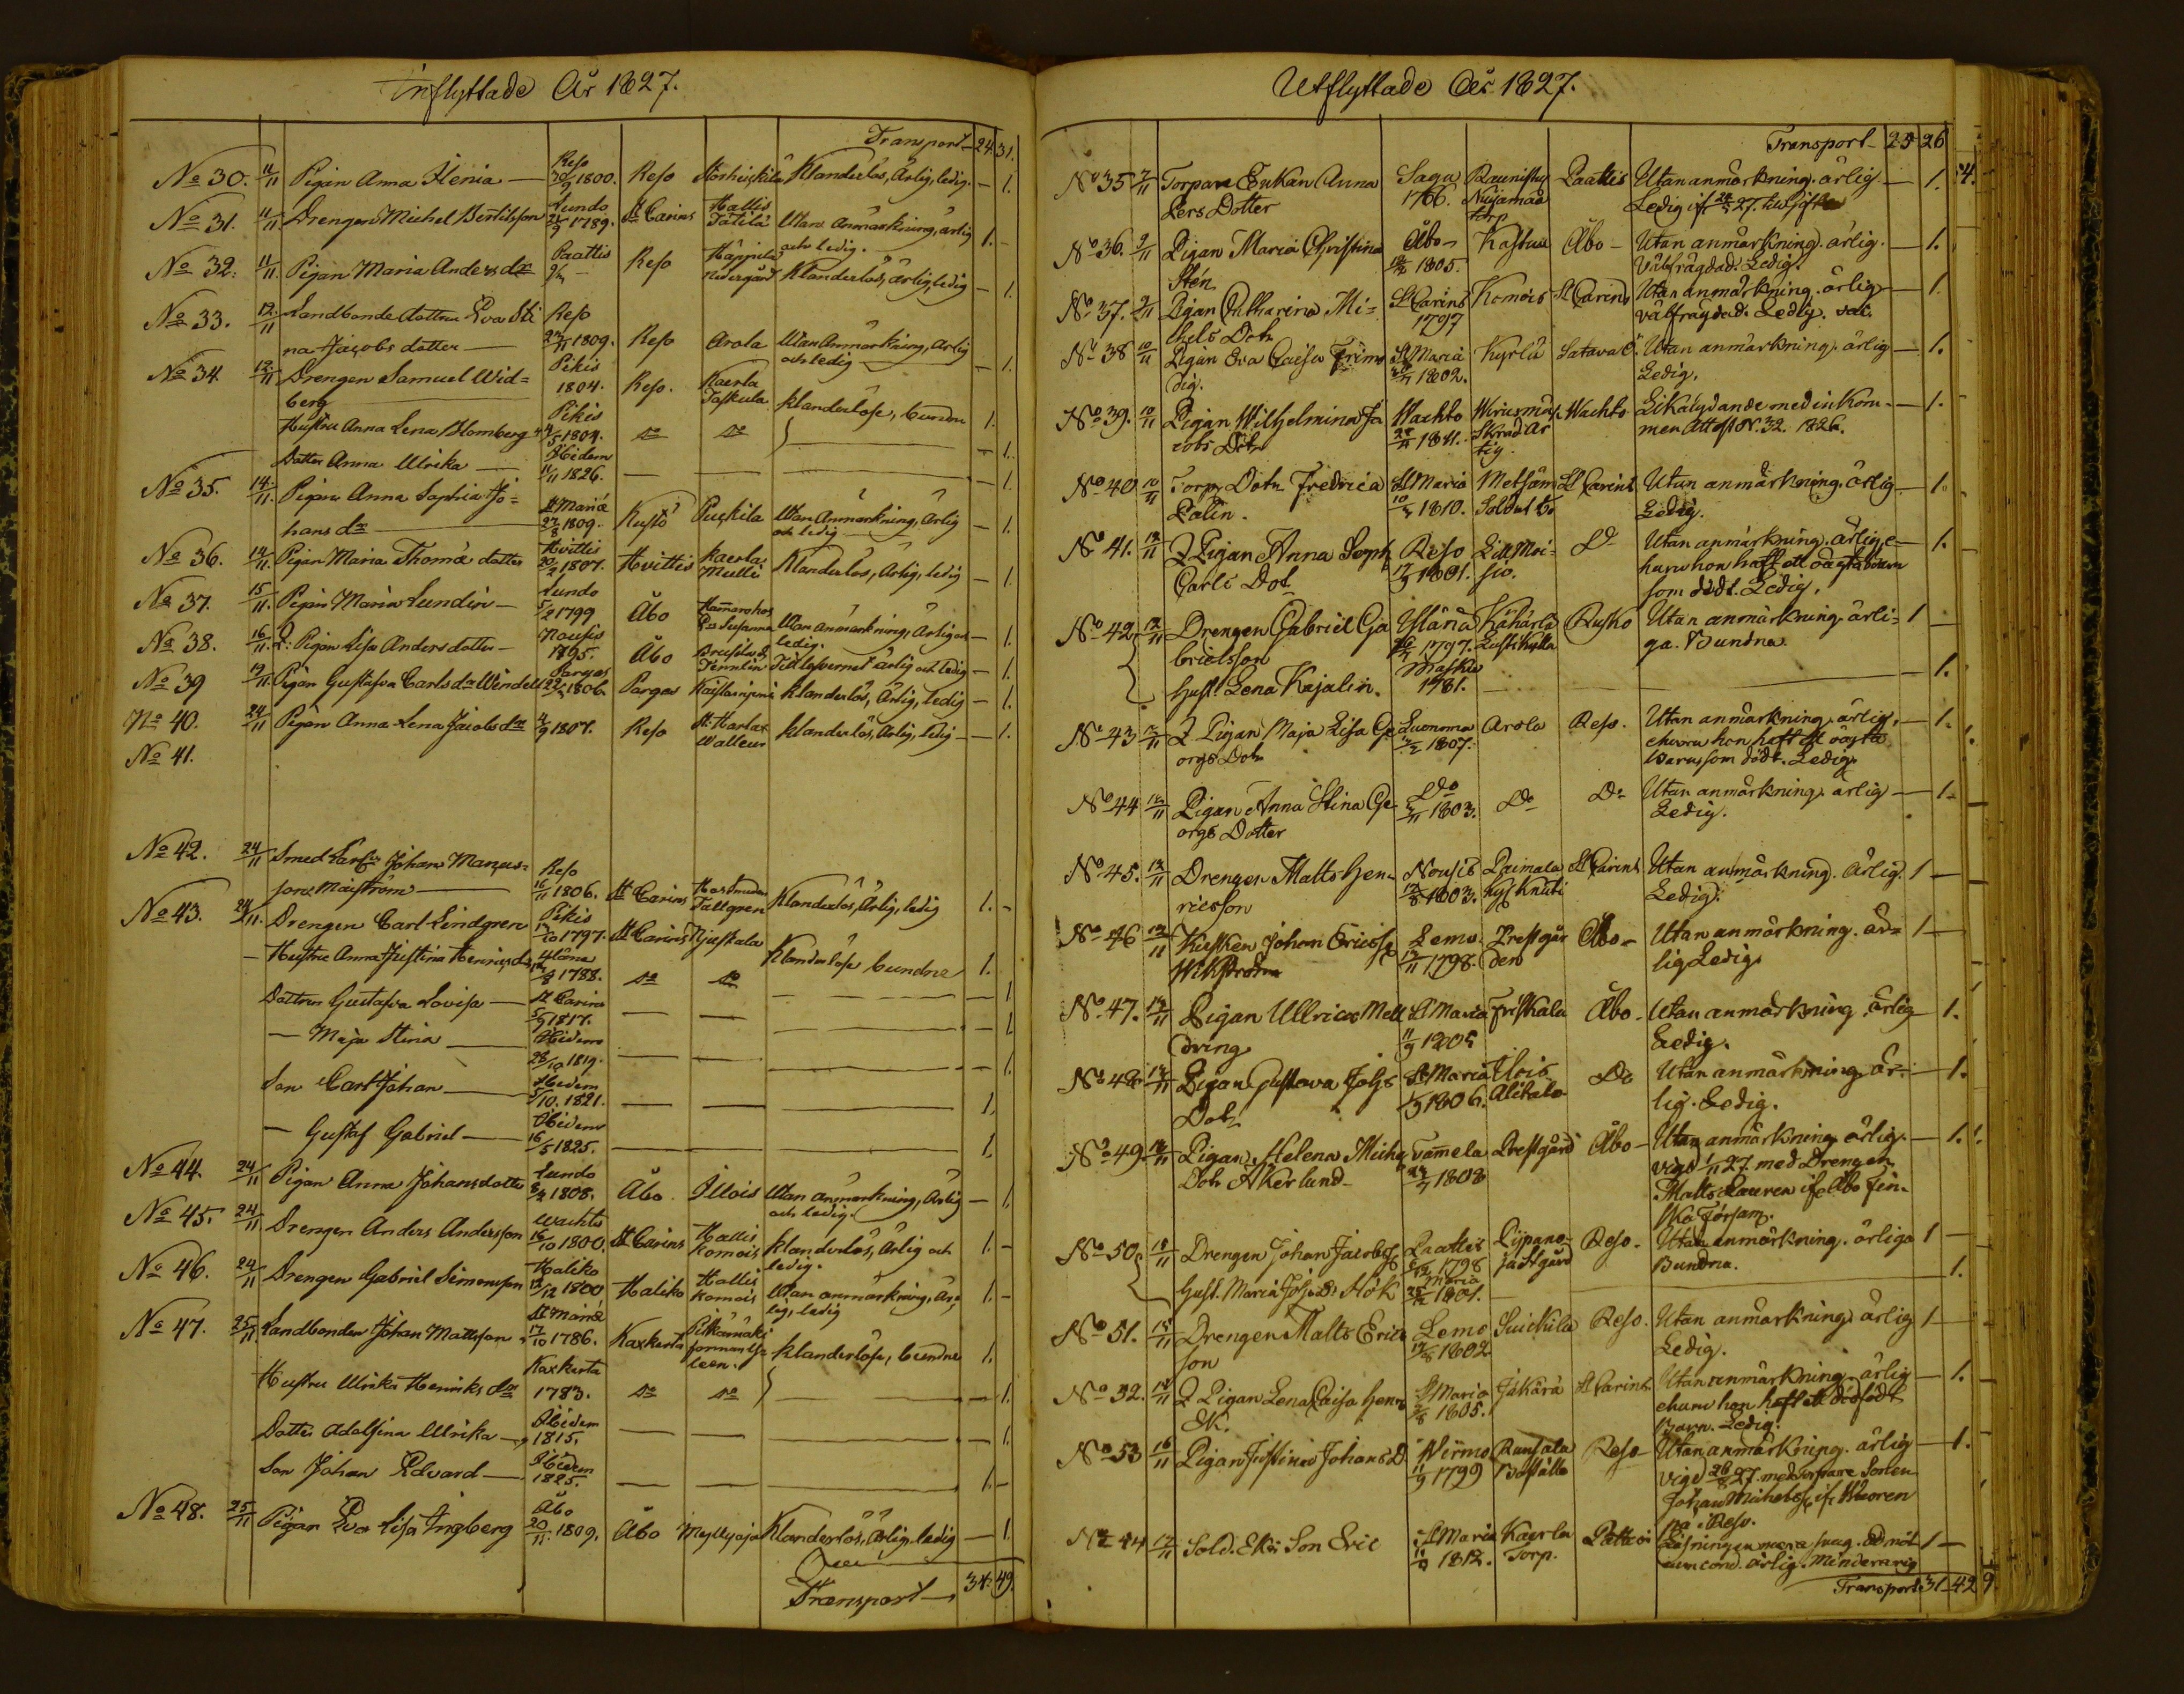 Inflyttade År 1827.
Transport 24. 31.
No 30. 11/11 Pigan Anna Henia — Reso 30/9 1800. Reso Korhuskila Klanderlös, Ärlig, ledig. — 1.
No 31. 11/11 Drengen Michel Bertilsson Lundo 1789. St Carins Hallis Tätilä Utan Anmärkning, ärlig och ledig. 1. —
No 32. 11/11 Pigan Maria Anders dr Paattis Reso Häppilä Nedergård Klanderlös, ärlig, ledig — 1.
No 33. 12/11 Landbonde dottren Eva Sti
na Jacobs dotter — Reso 23/11 1809. Reso Arola Utan Anmärkning, Ärlig och ledig — 1.
No 34. 12/11 Drengen Samuel Wid=
berg Pikis 1804. Reso. Kaerla Taskula Klanderlöse, bundne 1.
Hustru Anna Lena Blomberg Pikis 1804. do do — 1.
Dotter Anna Ulrika — Ibidem 11/11 1826. — — — 1.
No 35. 14/11. Pigan Anna Sophia Jo=
hans dr St Mariæ 27/8 1809. Kustö Puckila Utan Anmärkning, Ärlig och ledig — 1.
No 36. 14/11. Pigan Maria Thomæ dotter Hvittis 20/2 1807. Hvittis Kaerla Mulli Klanderlös, Ärlig, ledig — 1.
No 37. 15/11. Pigan Maria Lundin — Lundo 5/2 1799 Åbo Hamaro hos Susanna Utan anmärkning, Ärlig och ledig. — 1.
No 38. 16/11. Q: Pigan Lisa Anders dotter — Nousis 1795. Åbo ärlig och ledig — 1.
No 39 19/11. Pigan Gustafva Carls dr Windell Pargas 22/2 1806. Pargas Klanderlös, Ärlig, ledig — 1.
No 40. 24/11 Pigan Anna Lena Jacobs dr 4/9 1807. Reso St Karlax Walleur Klanderlös, Ärlig, ledig — 1.
No 41.
No 42. 24/11 Smed Johan Marcus=
son Majström — Reso 16/11 1806. St Carins Tallgren Klanderlös, Ärlig, ledig 1. —
No 43. 24/11. Drengen Carl Lindgren Pikis 17/10 1797. St Carins Njuskala Klanderlöse bundne 1.
— Hustru Anna Justina Henrics dr 1788. do do — 1
Dottren Gustafva Lovisa — St Carins 5/9 1817. — — — 1
— Maja Stina — Ibidem 28/10 1819. — — — 1.
Son Carl Johan — Ibidem 5/10. 1821. — — 1.
— Gustaf Gabriel — Ibidem 16/5 1825. — — 1.
No 44. 24/11 Pigan Anna Johans dotter Lundo 8/4 1808. Åbo. Illois Utan anmärkning, Ärlig och ledig. — 1.
No 45. 24/11 Drengen Anders Andersson Wachto 16/10 1800. St Carins Hallis Komois Klanderlös, Ärlig och ledig. 1. —
No 46. 24/11 Drengen Gabriel Simonsson Haliko 13/12 1800 Haliko Hallis Komois Utan anmärkning, Är=
lig, ledig 1. —
No 47. 25/11. Landbonden Johan Mattsson St Mariæ 17/10 1786. Kaxkerta Pitkämäki Klanderlöse, bundne 1.
Hustru Ulrika Henriks dr Kaxkerta 1783. do do — 1.
Dotter Adolfina Ulrika — Ibidem 1815. — — — 1.
Son Johan Edvard — Ibidem 1825. — — 1. —
No 48. 25/11 Pigan Eva Lisa Ingberg Åbo 20/11. 1809. Åbo Myllyoja Klanderlös, Ärlig, ledig — 1.
Transport — 34. 49.
Utflyttade År 1827.
Transport — 25 26
No 35 7/11 Torpare Enkan Anna
Lers Dotter Saga 1766. Raunistu Nuijamaa torp Paattis Utan anmärkning. ärlig
Ledig — 1.
No 36. 9/11 Pigan Maria Christina
Stén Åbo 1805. Kastu Åbo — Utan anmärkning. ärlig.
Välfrägdad. Ledig. — 1.
No 37. 9/11 Pigan Catharina Mi=
chels Dotr St Carins 1797 Komois St Carins Utan anmärkning. ärlig
välfrägdad. Ledig. — 1.
No 38 10/11 Pigan Eva Caisa Frimo
dig. St Maria 1802. Kyrlä Satava C. Utan anmärkning. ärlig
Ledig. — 1.
No 39. 10/11 Pigan Wilhelmina Ja
cobs Dotr Wachto 1811. Wiriusmäki Skraddar Wachto Likalydande med inkom-
men Attest N. 32. 1826. — 1.
No 40 10/11 Torp. Dotr Fredrica
Palin. St Maria 10/5 1810. Metsäm. Soldat Bo St Carins Utan anmärkning. ärlig
Ledig. — 1.
No 41. 12/11 Q Pigan Anna Soph
Carls Dot Reso 17/9 1801. Lill Moi=
sio. Do Utan anmärkning. ärlig, e-
huru hon haft ett oägta barn
som dödt. Ledig. — 1.
No 42 12/11 Drengen Gabriel Ga
brielsson Wläna 1797. Kähärlä Rusko Utan anmärkning. ärli=
ga. Bundna. 1 —
Hust. Lena Kajalin. Masku 1781. — 1.
No 43 12/11 Q Pigan Maja Lisa Ge
orgs Dotr Luonoma 1807. Arola Reso. Utan anmärkning. ärlig,
ehuru hon haft ett oägta
barn, som dödt. Ledig. — 1.
No 44 12/11 Pigan Anna Stina Ge
orgs Dotter Do 1803. Do Do Utan anmärkning. ärlig
Ledig. — 1.
No 45. 13/11 Drengen Matts Hen
ricsson Nousis 1803. Raimala St Carins Utan anmärkning. ärlig.
Ledig. 1 —
No 46 13/11 Kusken Johan Ericsson
Wikström Lemo 1798. Prestgår
den Åbo — Utan anmärkning. är=
lig Ledig. 1 —
No 47. 14/11 Pigan Ullrica Mell
dring St Maria 11/9 1805 Friskala Åbo. Utan anmärkning. ärlig
Ledig. 1.
No 48 14/11 Pigan Gustava Johs
Dotr St Maria 1806. Ilois Alitalo Do Utan anmärkning. är=
lig. Ledig. 1.
No 49. 14/11 Pigan Helena Mich.
Dotr Åkerlund Tamela 1808 Prestgård Åbo — Utan anmärkning. ärlig.
vigd 1/11 27 med Drengen
Matts Lauren ifr Åbo Fin-
ska Försam. — 1.
No 50. 15/11 Drengen Johan Jacobss. Paattis 1798 Piipano-
ja Stgård Reso. Utan anmärkning. ärliga
Bundna. 1 —
Hust. Maria Johs Dr Hök Maria 1801. — 1.
No 51. 15/11 Drengen Matts Erics
son Lemo 1802 Suickila Reso. Utan anmärkning. ärlig
Ledig. 1 —
No 52. 15/11 Q Pigan Lena Caisa Henrs
Ek. St Maria 1805. Jäkärä St Carins Utan anmärkning. ärlig
ehuru hon haft ett dödfödt
Barn. Ledig. — 1.
No 53 16/11 Pigan Justina Johans D. Wirmo 11/9 1799 Runsala Boställe Reso — Utan anmärkning. ärlig
Vigd 26/8 27. med Torpare Sonen
Johan Michelss. ifr
på i Reso. — 1.
No 54 17/11 Sold. Eks Son Eric St Maria 1812. Kaerla Torp. Pattoi Läsningen
ärlig. Minderårig 1 —
Transport 31 42